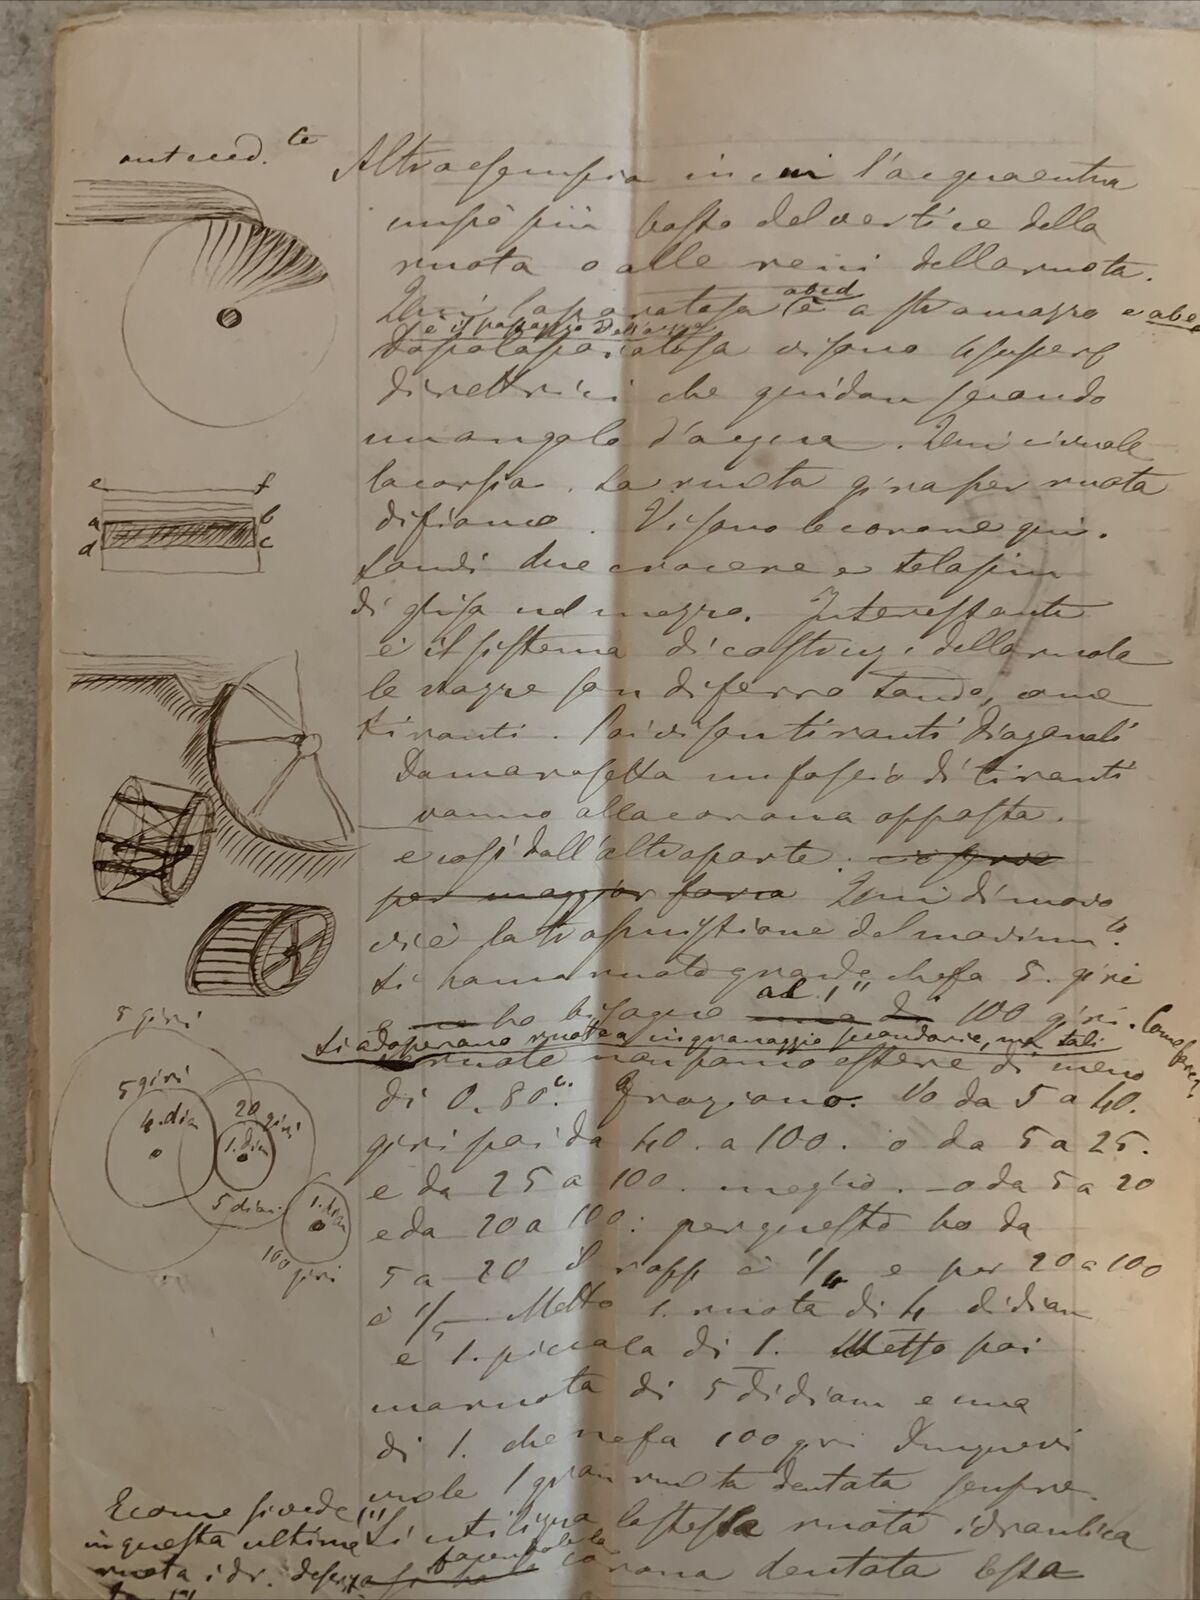 anteced.te
Altro esempio in cui l'acqua entra
un pò più basso del vertice della
ruota o alle reni della ruota.
Qui la paratoia abcd è a stramazzo e abe
è il passaggio dell'acqua
Dopo la paratoia vi sono 4 superf
direttrici che guidan secondo
un angolo d'acqua. Qui ci vuole
la corsia. La ruota gira per ruota
di fianco. Vi sono le corone qui.
Sonvi due crocere e telasin
di ghisa nel mezzo. Interessante
è il sistema di costruz. della ruota
le razze son di ferro tondo, come
tiranti. Poi vi son tiranti diagonali
Da una rosetta un fascio di tiranti
vanno alla corona opposta.
e così dall'altra parte. ciò serve
per maggior forza Qui di nuovo
vi è la trasmissione del movim.to
Si ha una ruota grande che fa 5. giri
e ho bisogno ad 1" 100 giri. Como
Si adoperano ruote a ingranaggio secondarie, ma tali
ruote non possono essere di meno
di 0.80c. Fraziono. Vo da 5 a 40.
giri poi da 40. a 100. o da 5 a 25.
e da 25 a 100. meglio. o da 5 a 20
e da 20 a 100: per questo ho da
5 a 20 il rapp è 1/4 e per 20 a 100
è 1/5 Metto 1. ruota di 4 di diam
e 1. piccola di 1. Metto poi
una ruota di 5 di diam e una
di 1. che ne fa 100 giri Dunque vi
vuole 1 gran ruota dentata sempre.
Si utilizza la stessa ruota idraulica
facendole la corona dentata essa
e f
a b
d c
5 giri
5 giri
4. dia
20 giri
1. diam
5 diam
1. diam
100 giri
E come si vede
in questa ultima
ruota idr.